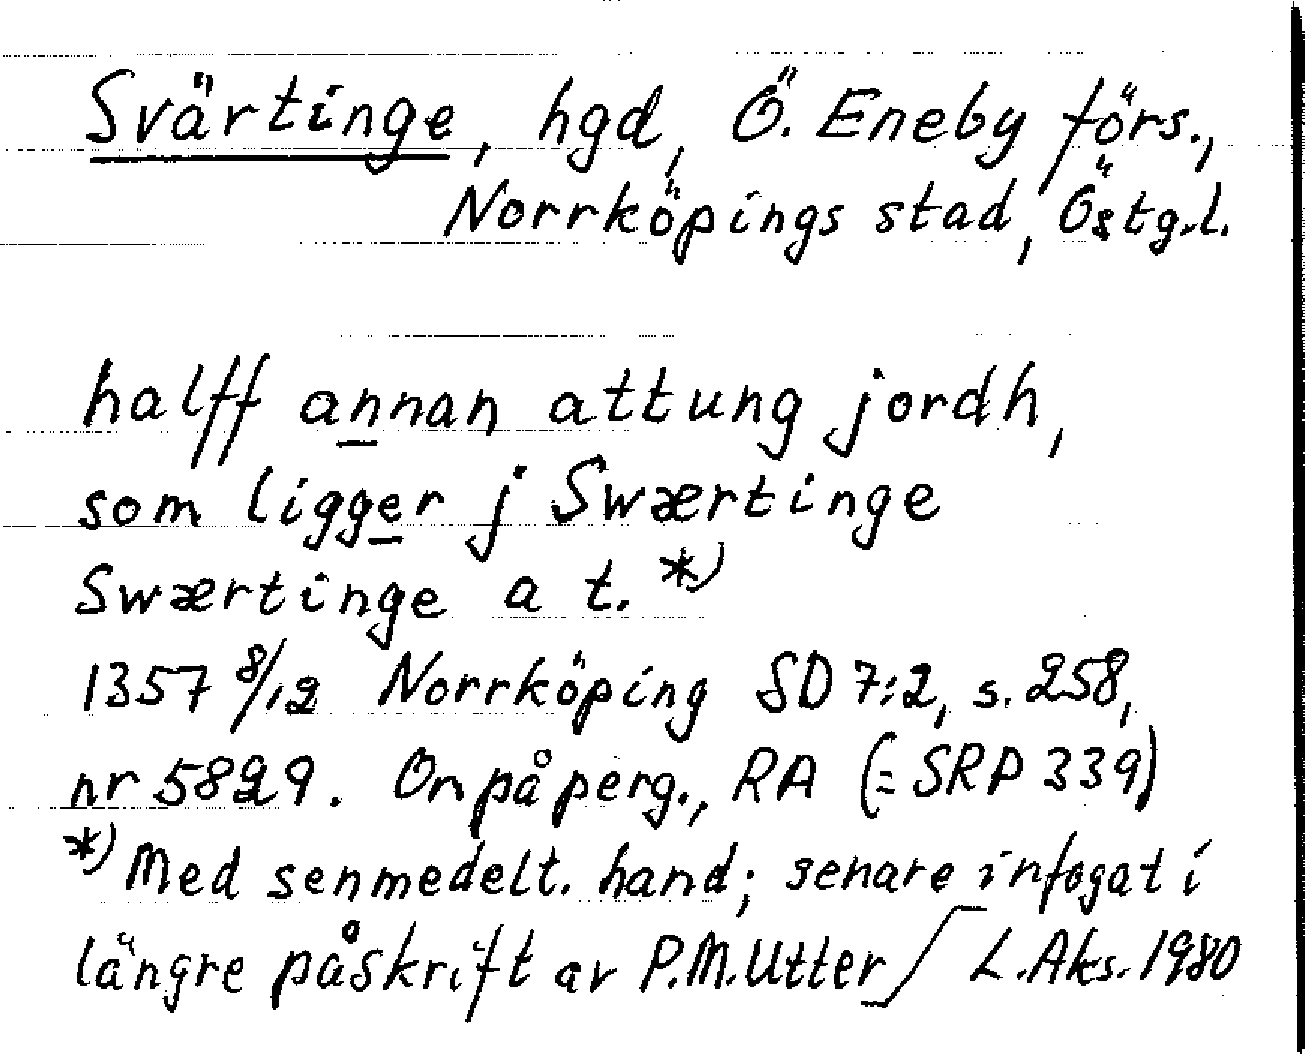 Svärtinge, hgd, Ö. Eneby förs.,
Norrköpings stad, Östg.l.
halff annan attung jordh,
som ligger j Swærtinge
Swærtinge a t. *)
1357 8/12 Norrköping SD 7:2, s. 258,
nr 5829. Or på perg., RA (= SRP 339)
*) Med senmedelt. hand; senare infogat i
längre påskrift av P.M. Utter / L. Aks. 1980